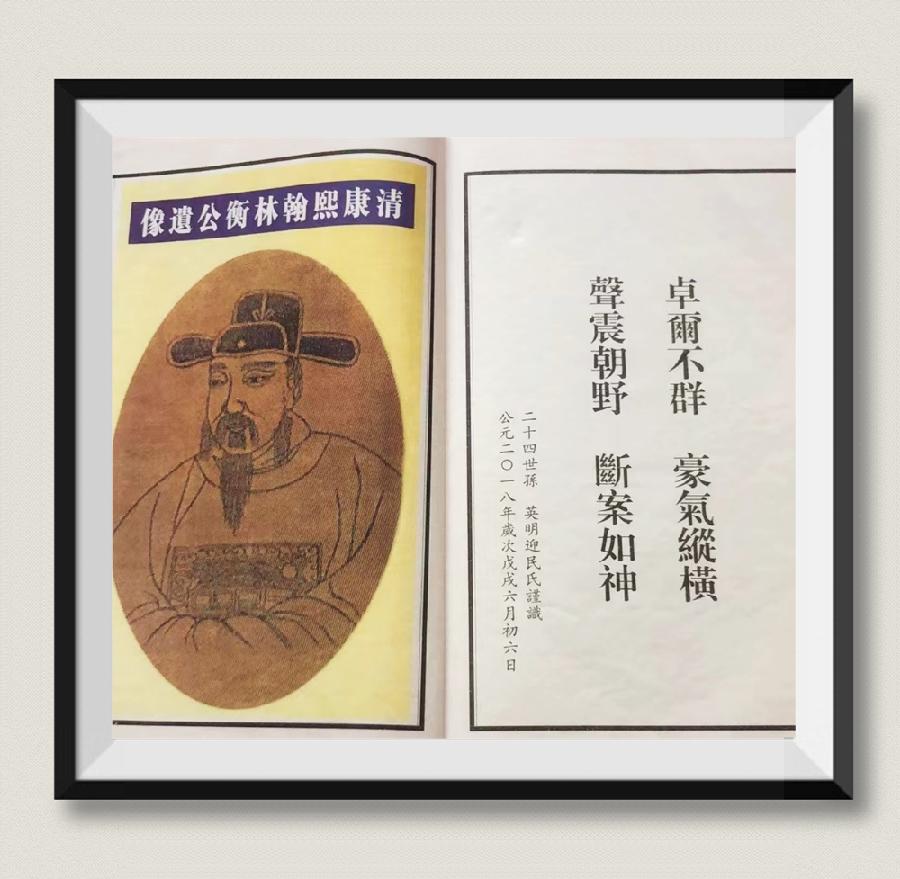 清康熙翰林衡公遺像
卓爾不群 豪氣縱橫
聲震朝野 斷案如神
二十四世孫 英明迎民氏謹識
公元二〇一八年歲次戊戌六月初六日